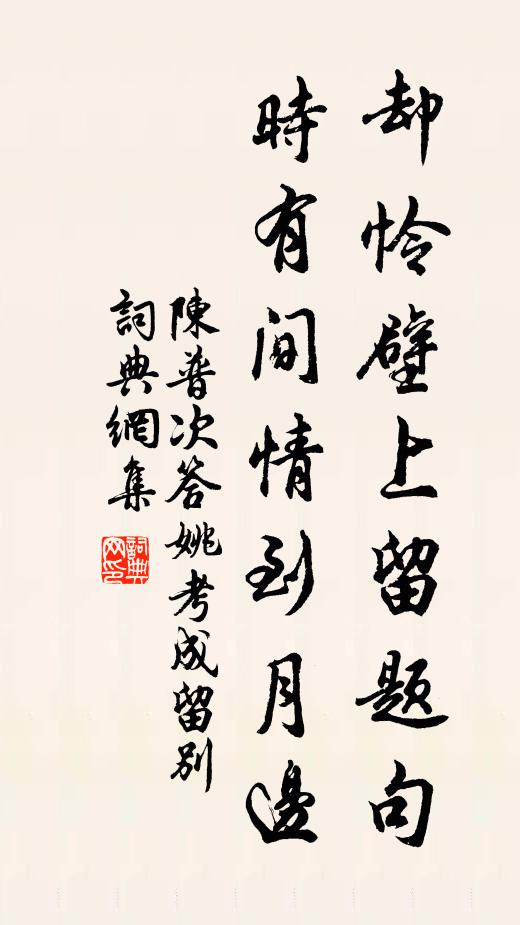 却怜壁上留題句
時有間情到月邊
陳普次答姚考成留別
詞典網集
詞典網印